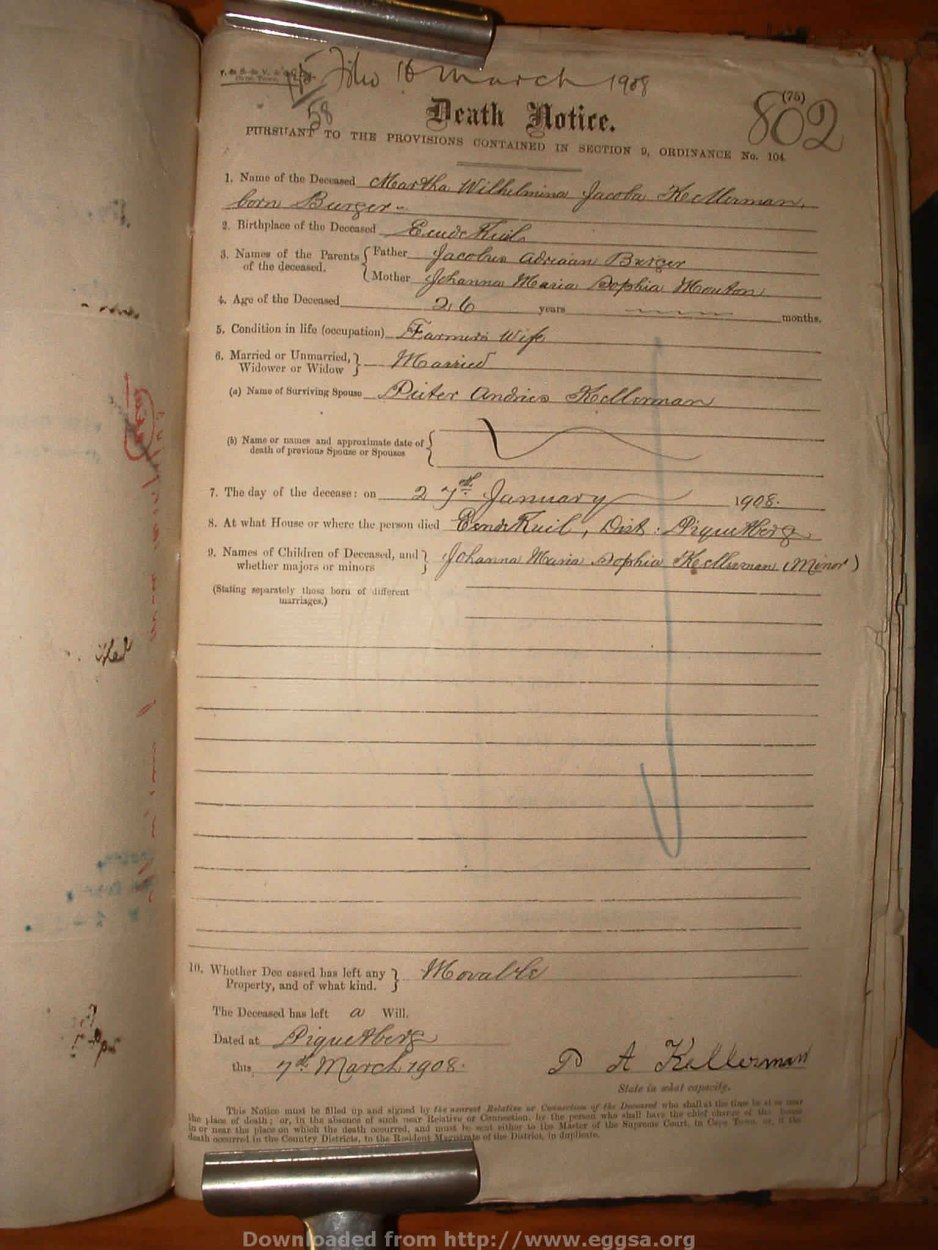 16 March 1908
58
(75)
802
Death Notice.
PURSUANT TO THE PROVISIONS CONTAINED IN SECTION 9, ORDINANCE No. 104
1. Name of the Deceased Martha Wilhelmina Jacoba Kellerman,
born Burger
2. Birthplace of the Deceased
3. Names of the Parents of the deceased. Father Jacobus Adriaan Burger
Mother Johanna Maria Sophia Mouton
4. Age of the Deceased 26 years months.
5. Condition in life (occupation) Farmers Wife
6. Married or Unmarried, Widower or Widow Married
(a) Name of Surviving Spouse Pieter Andries Kellerman
(b) Name or names and approximate date of death of previous Spouse or Spouses
7. The day of the decease: on 27th January 1908.
8. At what House or where the person died EendeKuil, Dist: Piquetberg
9. Names of Children of Deceased, and whether majors or minors Johanna Maria Sophia Kellerman (Minor)
(Stating separately those born of different marriages.)
10. Whether Deceased has left any Property, and of what kind. Movable
The Deceased has left a Will.
Dated at Piquetberg
this 7th March 1908.
P A Kellerman
State in what capacity.
This Notice must be filled up and signed by the nearest Relative or Connection of the Deceased who shall at the time be at or near
the place of death; or, in the absence of such near Relative or Connection, by the person who shall have the chief charge of the house
in or near the place on which the death occurred, and must be sent either to the Master of the Supreme Court, in Cape Town, or, if the
death occurred in the Country Districts, to the Resident Magistrate of the District, in duplicate.
Downloaded from http://www.eggsa.org